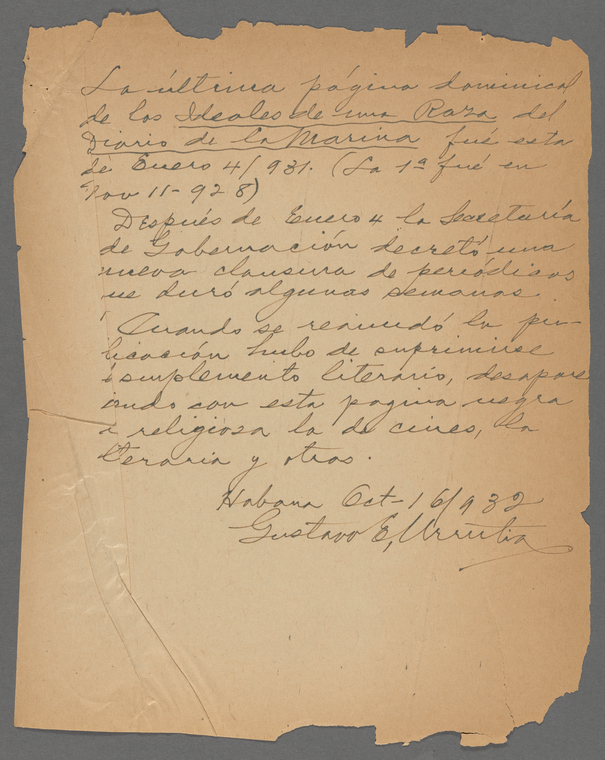 La última página dominical
de los Ideales de una Raza del
Diario de la Marina fué esta
de Enero 4/931. (La 1ª fué en
Nov 11-928)
Después de Enero 4 la Secretaría
de Gobernación decretó una
nueva clausura de periódicos
ue duró algunas semanas.
Cuando se reanudó la pu-
licación hubo de suprimirse
suplemento literario, desapare
iendo con esta pagina negra
a religiosa la de cines, la
teraria y otras.
Habana Oct-16/932
Gustavo E, Urrutia